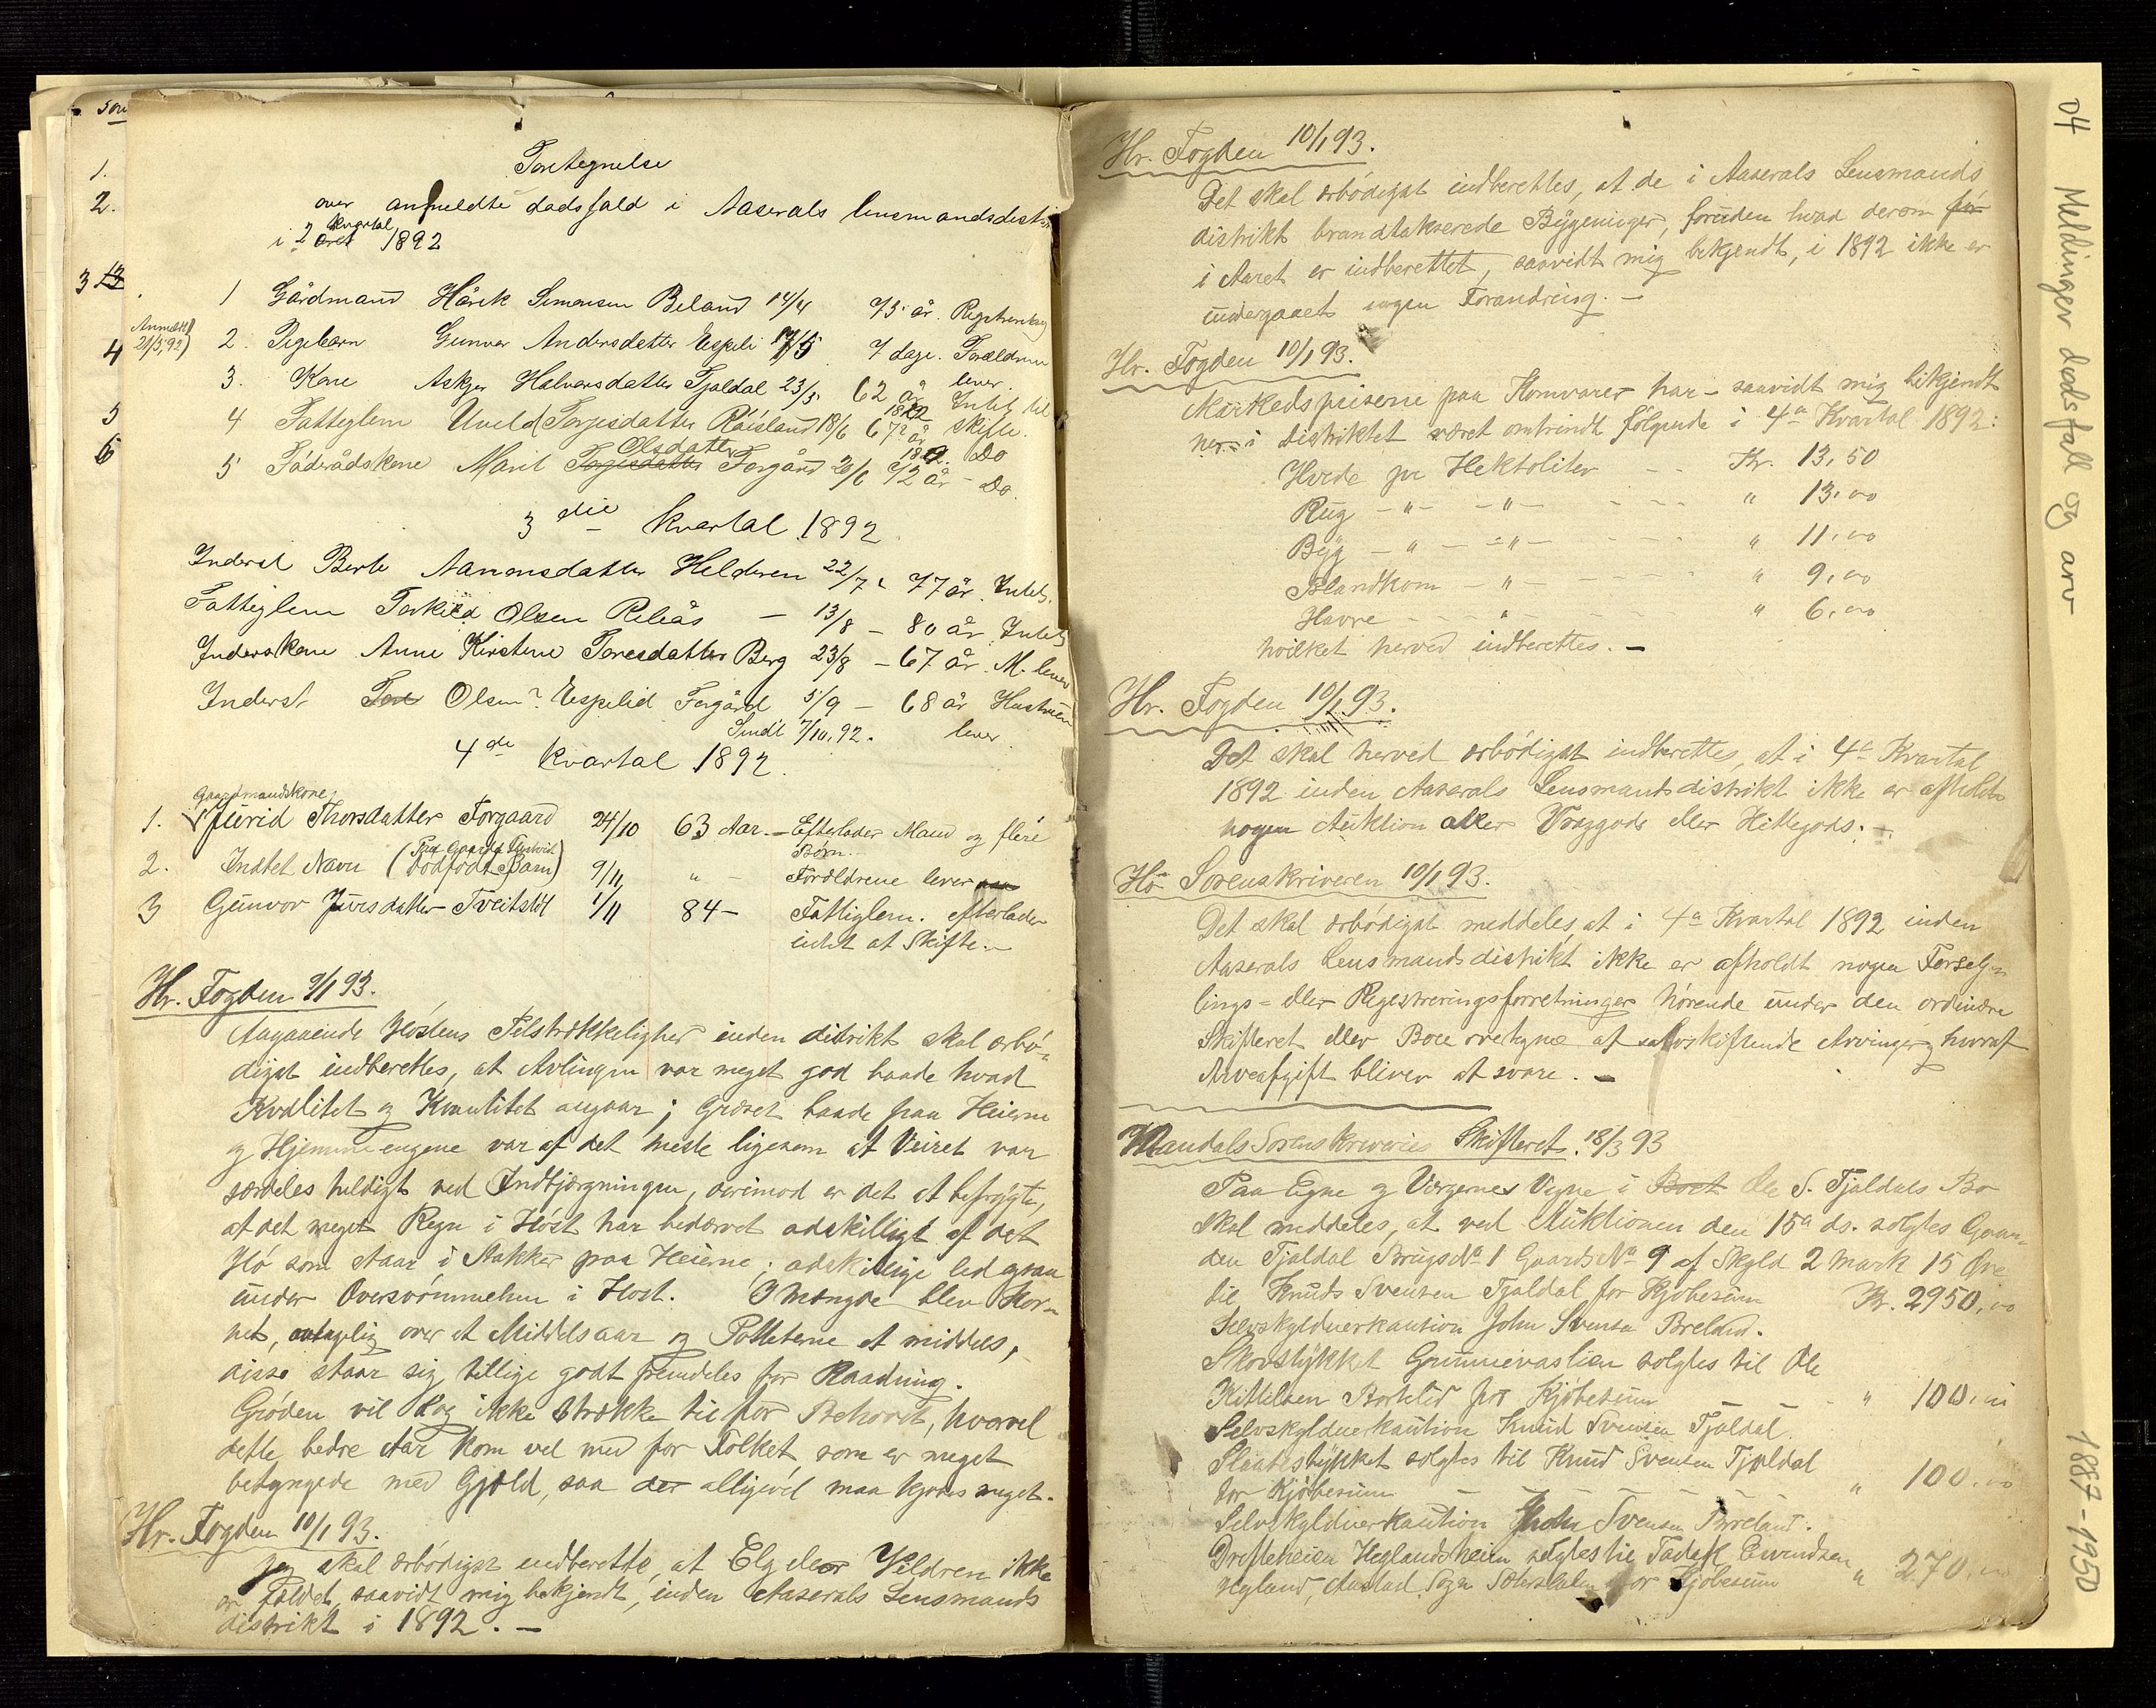 Fortegnelse
over anmeldte dødsfald i Aaserals lensmandsdistr
i 2 kvartal året 1892
1 Gårdmand Hårek Simonsen Beland 14/4 75 år. Registrering
Anmeldt 21/5,92) 2. Pigebarn Gunvor Andersdatter Espeli 17/5 7 dage. Forældrene lever.
3. Kone Askjer Halvorsdatter Tjaldal 23/5 62 år Intet til skifte.
4 Fatteglem Uveld Torjesdatter Røisland 18/6 67 år Do
5 Føderådskone Marit Torjesdatter Olsdatter Forgård 20/6 72 år - Do.
3 die kvartal 1892
Inderst Berte Aanonsdatter Helderen 22/7 77 år. Intet.
Fatteglem Terkild Olsen Røliås - 13/8 - 80 år. Intet
Inderskone Anne Kirstine Toresdatter Berg 23/8 - 67 år. M. lever
Inderst Tore Olsen? Espelid Forgård 5/9 - 68 år Hustruen lever.
Sendt 7/10.92.
4 de kvartal 1892.
Gaardmandskone
1. Jurid Thorsdatter Forgaard 24/10 63 Aar. - Efterlader Mand og flere Børn.
2. Indtet Navn (Dødfødt Barn) 9/11 " - Forældrene lever
3 Gunvor Jversdatter Tveitstøl 1/11 84 - Fattiglem. efterlader
intet at Skifte. -
Hr. Fogden 9/1 93.
Angaaende Høstens Tilstrækkelighed inden distrikt skal ærbø-
digst indberettes, at Avlingen var meget god baade hvad
Kvalitet og Kvantitet angaar; Græset baade paa Heierne
og Hjemmeengene var af det meste ligesom at Veiret var
særdeles heldigt ved Indbjergningen, derimod er det at befrygte,
at det meget Regn i Høst har bedærvet adskilligt af det
Hø som staar i Stakker paa Heierne; adskillige led ogsaa
under Oversvømmelsen i Høst. I Mængde blev Kor-
net, antagelig over et Middelsaar og Poteterne et middels,
disse staar sig tillige godt fremdeles for Raadning.
Grøden vil dog ikke strække til for Behovet, hvorvel
dette bedre Aar kom vel med for Folket, som er meget
betyngede med Gjæld, saa der alligevel maa kjøbes meget.
Hr. Fogden 10/1 93.
Jeg skal ærbødigst indberette, at Elg eller Vildren ikke
er fældet, saavidt mig bekjendt, inden Aaserals Lensmands
distrikt i 1892. -
Hr. Fogden 10/1 93.
Det skal ærbødigst indberettes, at de i Aaserals Lensmands
distrikt brandtakserede Bygninger, foruden hvad derom før
i Aaret er indberettet, saavidt mig bekjendt, i 1892 ikke er
undergaaet nogen Forandring. -
Hr. Fogden 10/1 93.
Markedspriserne paa Kornvarer har - saavidt mig bekjendt
her i Distriktet været omtrindt følgende i 4de Kvartal 1892:
Hvede pr Hektoliter - - Kr. 13,50
Rug - " - - " - - - - " 13,00
Byg - " - - " - - - - " 11,00
Blandkorn - " - - - - " 9,00
Havre - - - " - - - " 6,00
hvilket herved indberettes. -
Hr. Fogden 10/1 93.
Det skal herved ærbødigst indberettes, at i 4de Kvartal
1892 inden Aaserals Lensmandsdistrikt ikke er afholdt
nogen Auktion over Vraggods eller Hittegods. -
Hr. Sorenskriveren 10/1 93.
Det skal ærbødigst meddeles, at i 4de Kvartal 1892 inden
Aaserals Lensmandsdistrikt ikke er afholdt nogen Forseg-
lings- eller Registreringsforretninger hørende under den ordinære
Skifteret eller Boer overtagne af selvskiftende Arvinger, hvoraf
Arveafgift bliver at svare. -
Mandals Sorenskriveries Skifteret. 18/3 93
Paa Egne og Værgernes Vegne i Boet Ole S. Tjaldals Bo
skal meddeles, at ved Auktionen den 15de ds. solgtes Gaar-
den Tjaldal Brugs No 1 Gaards No 9 af Skyld 2 Mark 15 Øre
til Knud Svensen Tjaldal for Kjøbesum Kr. 2950,00
Selvskyldnerkaution John Svensen Breland.
Skovstykket Grunnevaslien solgtes til Ole
Kittelsen Bortelid for Kjøbesum - - - " 100,00
Selvskyldnerkaution Knud Svensen Tjaldal.
Slaattestykket solgtes til Knud Svensen Tjaldal
for Kjøbesum - - - - - " 100,00
Selvskyldnerkaution John Svensen Breland.
Drifteheien Heglandsheien solgtes til Tadak Eivendsen
Hegland, Austad Sogn Sætersdalen for Kjøbesum " 270,00
04 Meldinger dødsfall og arv
1887-1950